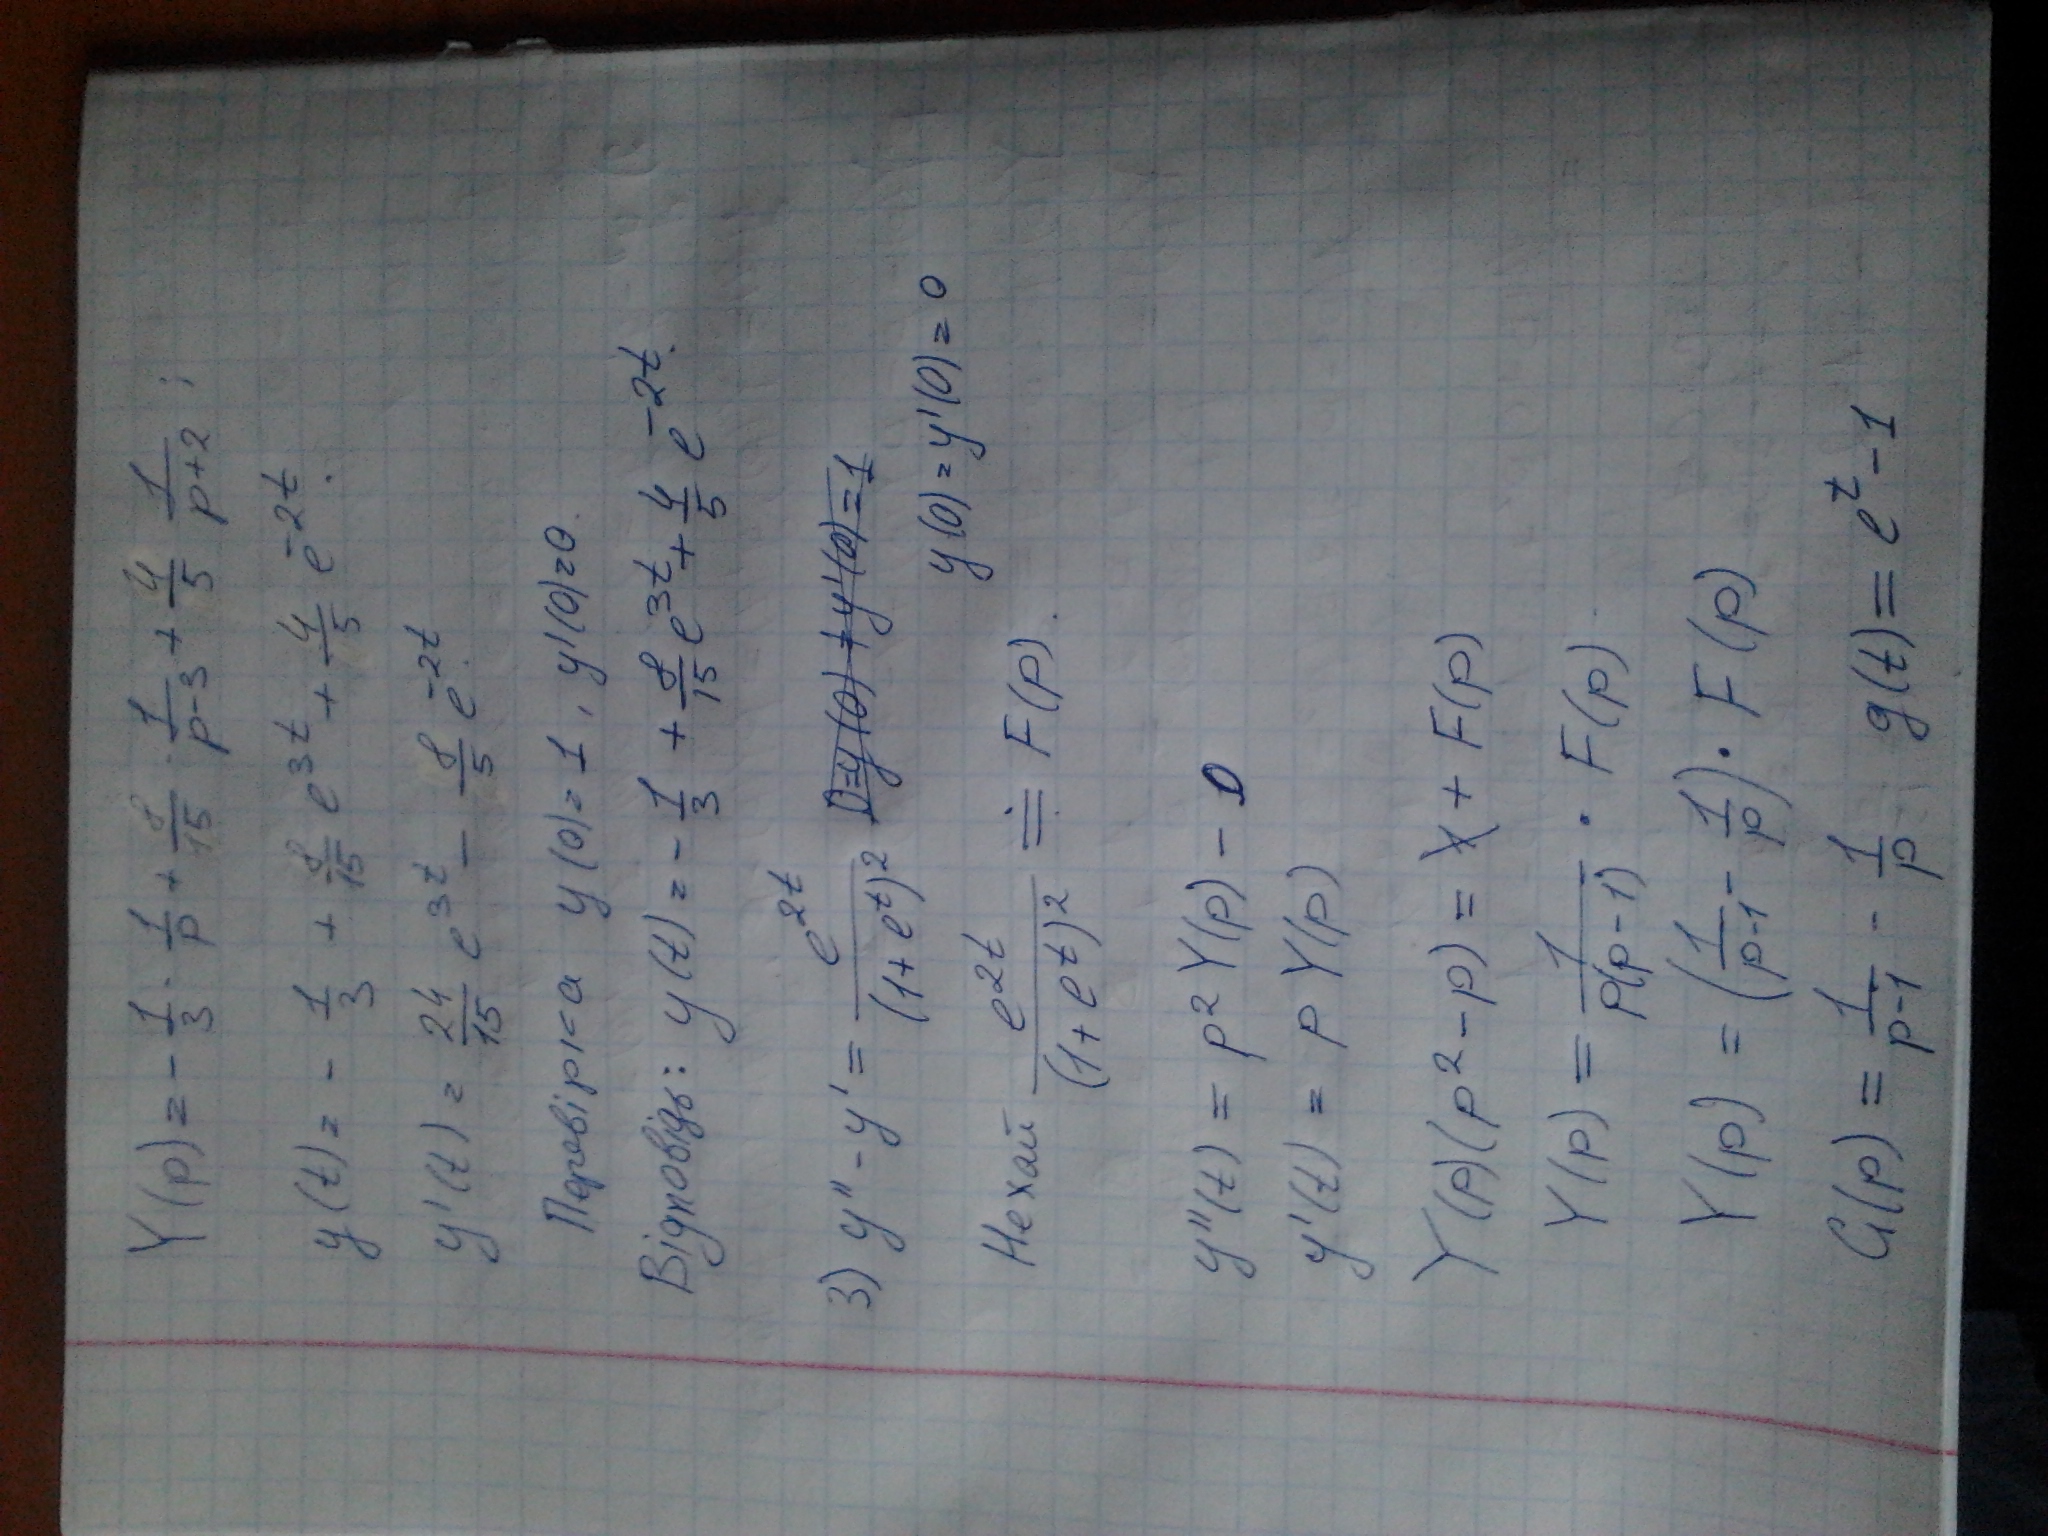 Y(p) = - 1/3 · 1/p + 8/15 · 1/(p-3) + 4/5 1/(p+2) ;
y(t) = - 1/3 + 8/15 e^{3t} + 4/5 e^{-2t}.
y'(t) = 24/15 e^{3t} - 8/5 e^{-2t}.
Перевірка y(0) = 1 , y'(0) = 0.
Відповідь: y(t) = - 1/3 + 8/15 e^{3t} + 4/5 e^{-2t}.
3) y'' - y' = e^{2t}/(1+e^t)^2
y(0) = y'(0) = 0
Нехай e^{2t}/(1+e^t)^2 ≑ F(p).
y''(t) = p^2 Y(p) - 0
y'(t) = p Y(p)
Y(p)(p^2 - p) = + F(p)
Y(p) = 1/(p(p-1)) · F(p)
Y(p) = (1/(p-1) - 1/p) · F(p)
G(p) = 1/(p-1) - 1/p g(t) = e^t - 1